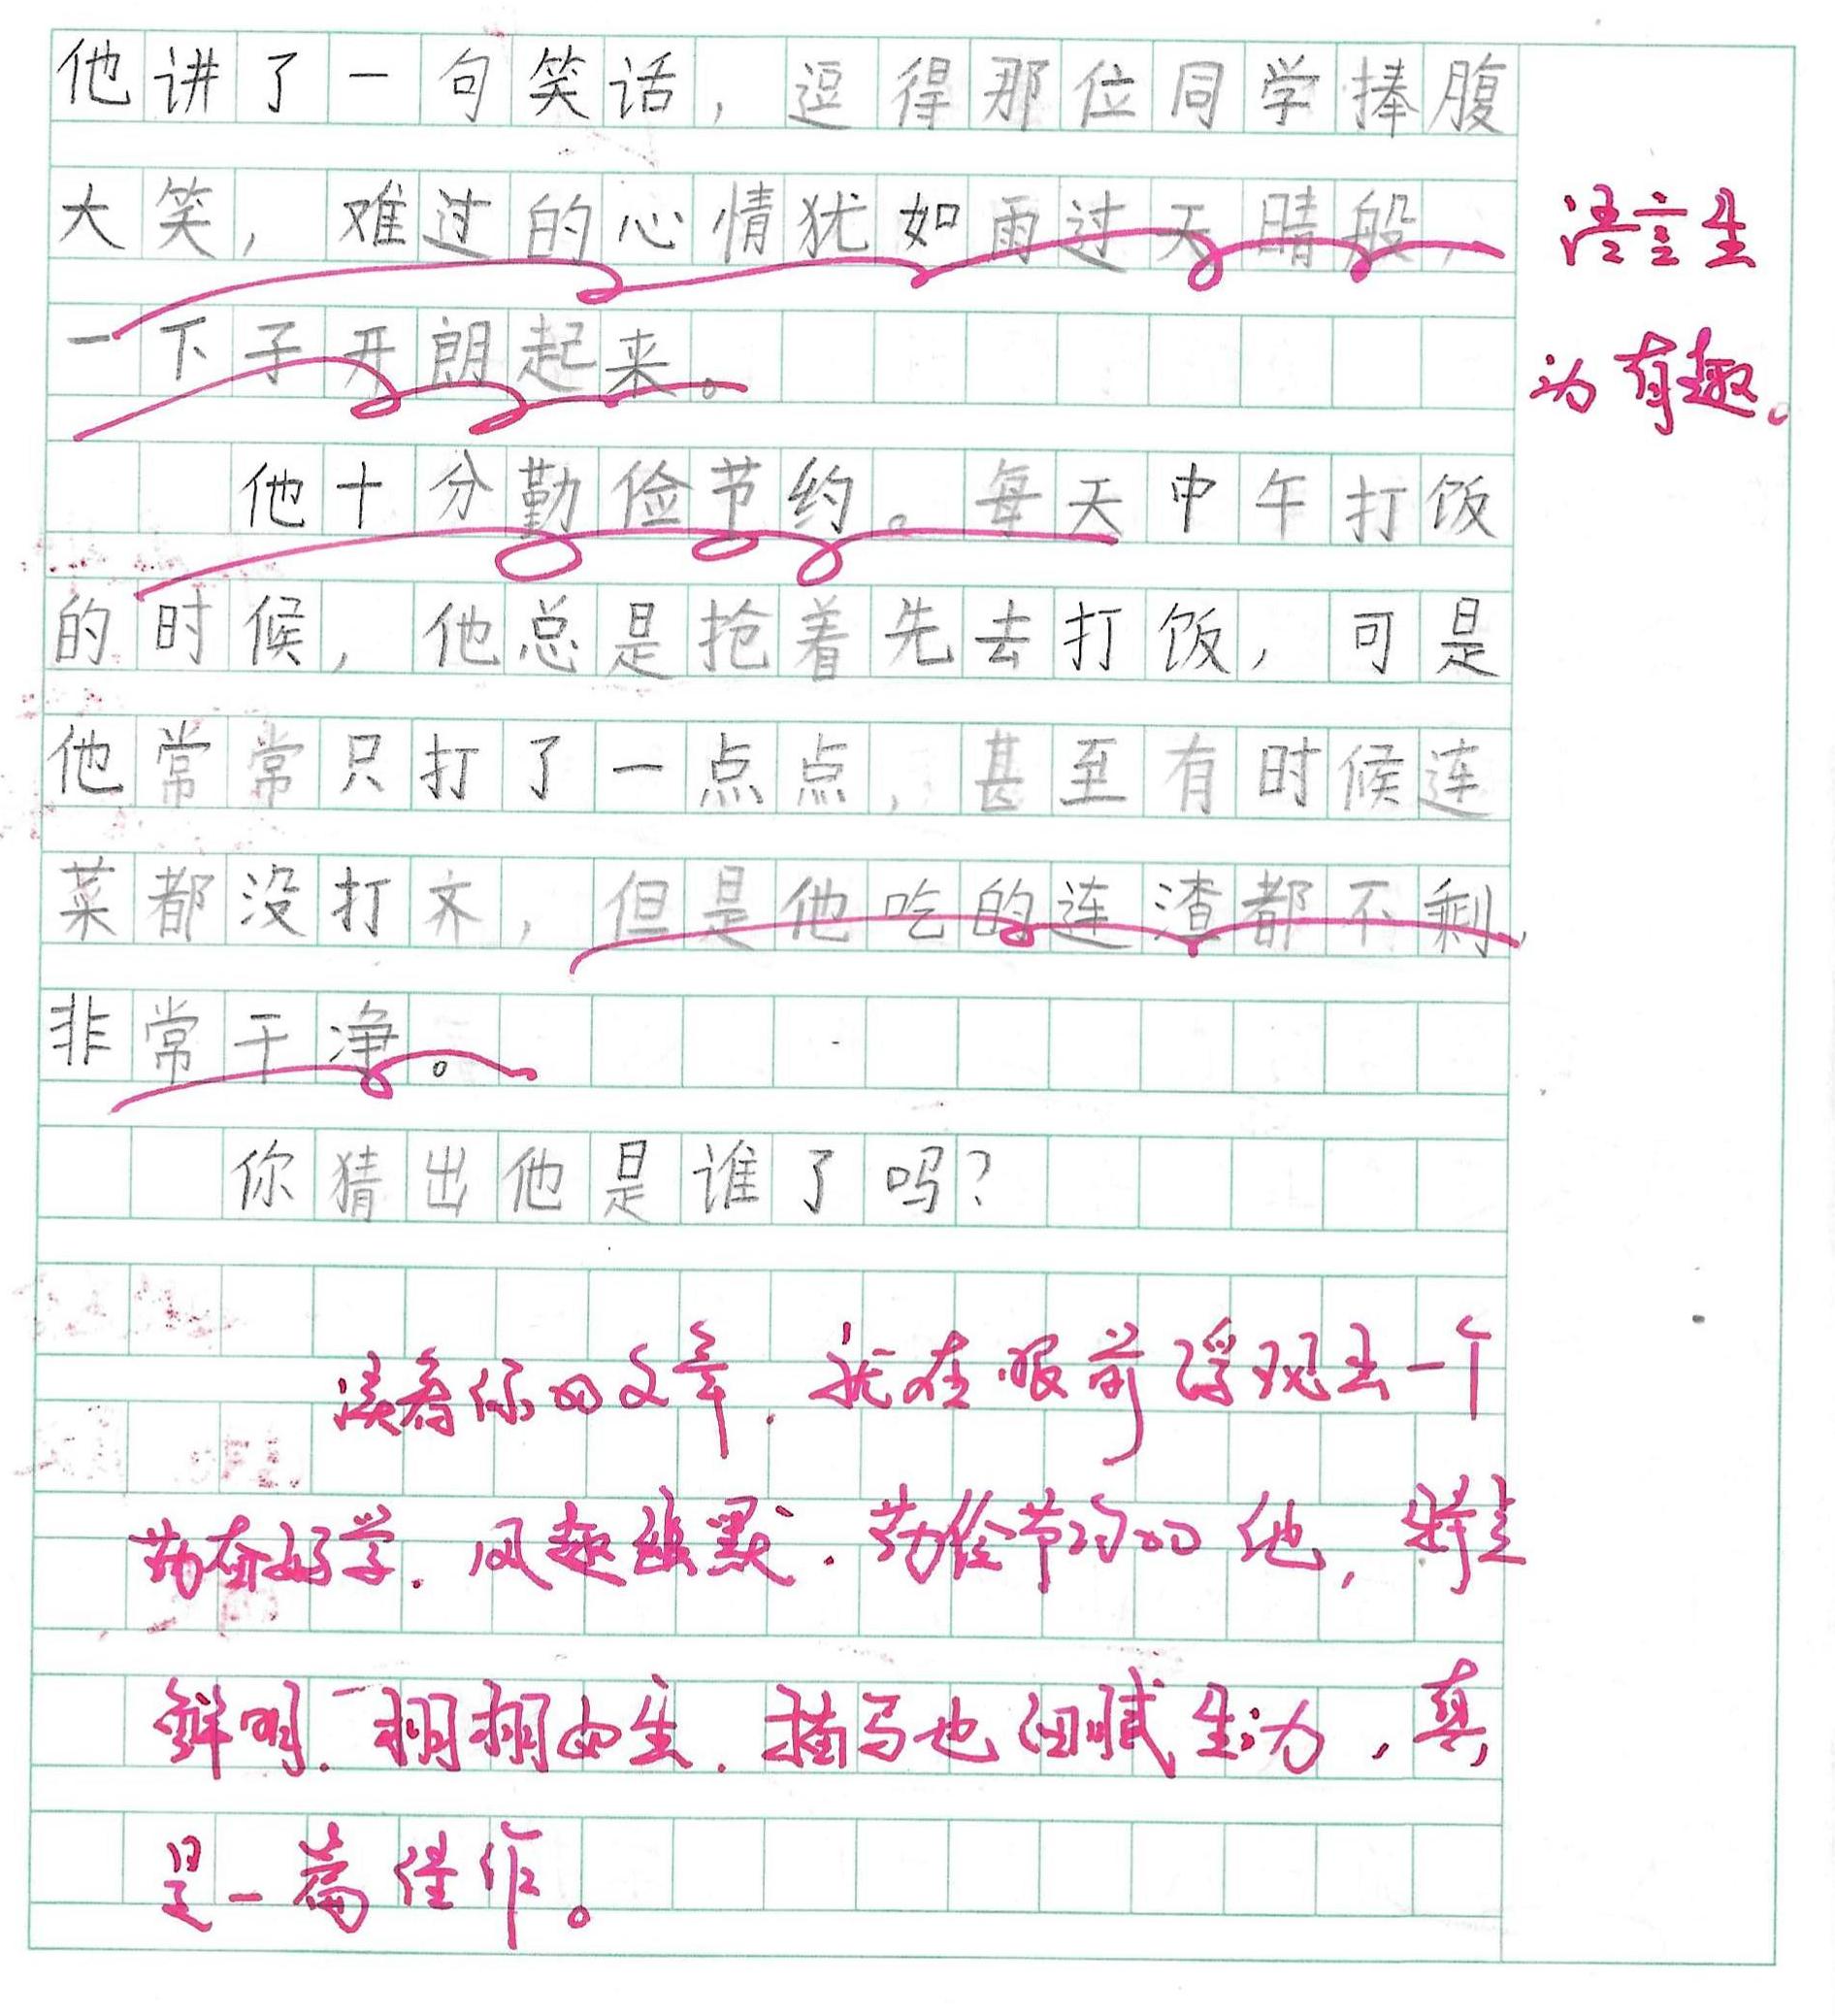 他讲了一句笑话，逗得那位同学捧腹
大笑，难过的心情犹如雨过天晴般，
语言生
一下子开朗起来。
动有趣。
他十分勤俭节约。每天中午打饭
的时候，他总是抢着先去打饭，可是
他常常只打了一点点，甚至有时候连
菜都没打齐，但是他吃的连渣都不剩，
非常干净。
你猜出他是谁了吗？
读着你的文章，就在眼前浮现出一个
勤奋好学，风趣幽默，勤俭节约的他，特点
鲜明，栩栩如生，描写也细腻生动，真
是一篇佳作。